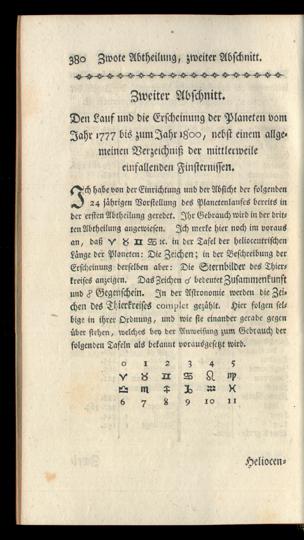 380 Zwote Abtheilung, zweiter Abschnitt.
Zweiter Abschnitt.
Den Lauf und die Erscheinung der Planeten vom
Jahr 1777 bis zum Jahr 1800, nebst einem allge-
meinen Verzeichniß der mittlerweile
einfallenden Finsternissen.
Ich habe von der Einrichtung und der Absicht der folgenden
24 jährigen Vorstellung des Planetenlaufes bereits in
der ersten Abtheilung geredet. Ihr Gebrauch wird in der drit-
ten Abtheilung angewiesen. Ich merke hier noch im voraus
an, daß ♈ ♉ ♊ ♋ ꝛc. in der Tafel der heliocentrischen
Länge der Planeten: Die Zeichen; in der Beschreibung der
Erscheinung derselben aber: Die Sternbilder des Thier-
kreises anzeigen. Das Zeichen ☌ bedeutet Zusammenkunft
und ☍ Gegenschein. In der Astronomie werden die Zei-
chen des Thierkreises complet gezählt. Hier folgen sel-
bige in ihrer Ordnung, und wie sie einander gerade gegen
über stehen, welches bey der Anweisung zum Gebrauch der
folgenden Tafeln als bekannt vorausgesetzt wird.
0 1 2 3 4 5
♈ ♉ ♊ ♋ ♌ ♍
♎ ♏ ♐ ♑ ♒ ♓
6 7 8 9 10 11
Heliocen-